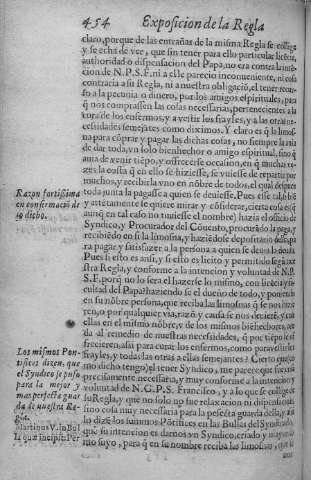 454 Exposicion de la Regla
claro, porque de las entrañas de la misma Regla se collige
y se echa de ver, que sin tener para ello particular licẽcia,
authoridad o dispensacion del Papa, no era contra la intẽ-
cion de N.P.S.F. ni a elle parecio inconueniente, ni cosa
contraria a su Regla, ni a nuestra obligació, el tener recur-
so a la pecunia o dinero, por los amigos espirituales, para
q̃ nos comprassen las cosas necessarias, pertenecientes a la
cura de los enfermos, y a vestir los frayles, y a las otras ne-
cessidades semejãtes como diximos. Y claro es q̃ la limos-
na para cõprar y pagar las dichas cosas, no siempre la auia
de dar toda, vn solo bienhechor o amigo espiritual, sino q̃
auia de venir tiẽpo, y offrecerse occasion, en q̃ muchas ve-
zes la costa q̃ en ello se hiziesse, se vuiesse de repartir por
muchos, y recibirla vno en nõbre de todos, el qual despues
toda junta la pagasse a quien se deuiesse. Pues este tal, biẽ
y attẽtamente se quiere mirar y cõsiderar, cierta cosa es q̃
aunq̃ en tal caso no tuuiesse el nombre) hazia el officio de
Syndico, y Procurador del Cõuento, procurãdo la paga, y
recibiẽdo en si la limosna, y haziẽdose depositario della, pa
ra pagar y satisfazer a la persona a quien se deuia lo deuido.
Pues si esto es ansi, y si esto es licito y permitido segũ nue-
stra Regla, y conforme a la intencion y voluntad de N.P.
S.F. porq̃ no lo sera el hazerse lo mismo, con licẽcia y fa-
cultad del Papa haziendo se el dueño de todo, y poniendo
en su nõbre persona, que reciba las limosnas
Razon fortissima
en confirmació de
lo dicho.
al remedio de nuestras necessidades, q̃ por tiẽpo se of-
frecieren, assi para curar los enfermos, como para vestir los
frayles, y todas las otras a ellas semejantes? Cierto que co-
mo dicho tengo, el tener Syndico, me parece que fue cosa
precisamente necessaria, y muy conforme a la intencion y
voluntad de N.G.P.S. Francisco, y a lo que se collige de
su Regla, y que no solo no fue relaxacion ni dispensacion
sino cosa muy necessaria para la perfecta guarda della, assi
lo dizẽ los summos Põtifices en las Bullas del Syndicado
que su intento es darnos vn Syndico, criado y mayordo-
mo suyo, para q̃ en su nombre reciba las limosnas, que
Los mismos Pon-
tifices dizen, que
el Syndico se puso
para la mejor y
mas perfecta guar
da de nuestra Re-
gla.
Martinus V. in Bul
la quæ incipit: Per